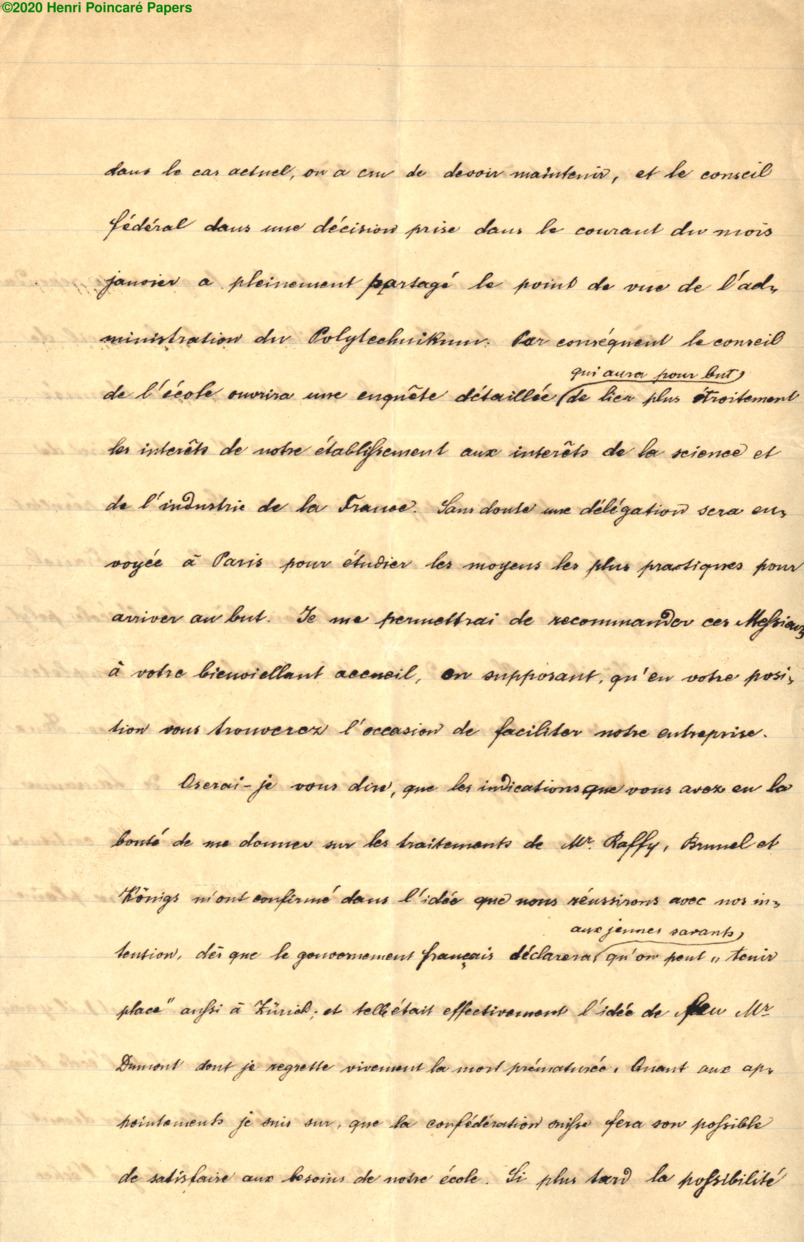 ©2020 Henri Poincaré Papers
dans le cas actuel, on a cru de devoir maintenir, et le conseil
fédéral dans une décision prise dans le courant du mois
janvier a pleinement partagé le point de vue de l'ad-
ministration du Polytechnikum. Par conséquent le conseil
qui aura pour but
de l'école ouvrira une enquête détaillée de lier plus étroitement
les interêts de notre établissement aux interêts de la science et
de l'industrie de la France. Sans doute une délégation sera en-
voyée à Paris pour étudier les moyens les plus practiques pour
arriver au but. Je me permettrai de recommander ces Messieurs
à votre bienviellant accueil, en supposant, qu'en votre posi-
tion vous trouverez l'occasion de faciliter notre entreprise.
Oserai-je vous dire, que les indications que vous avez eu la
bonté de me donner sur les traitements de Mr. Raffy, Brunel et
Königs m'ont confirmé dans l'idée que nous réussirons avec nos in-
aux jeunes savants,
tention, dès que le gouvernement français déclarera qu'on peut „tenir
place" aussi à Zürich; et telle était effectivement l'idée de feu Mr
Dumont dont je regrette vivement la mort prématurée. Quant aux ap-
pointements je suis sur, que la confédération suisse fera son possible
de satisfaire aux besoins de notre école. Si plus tard la possibilité